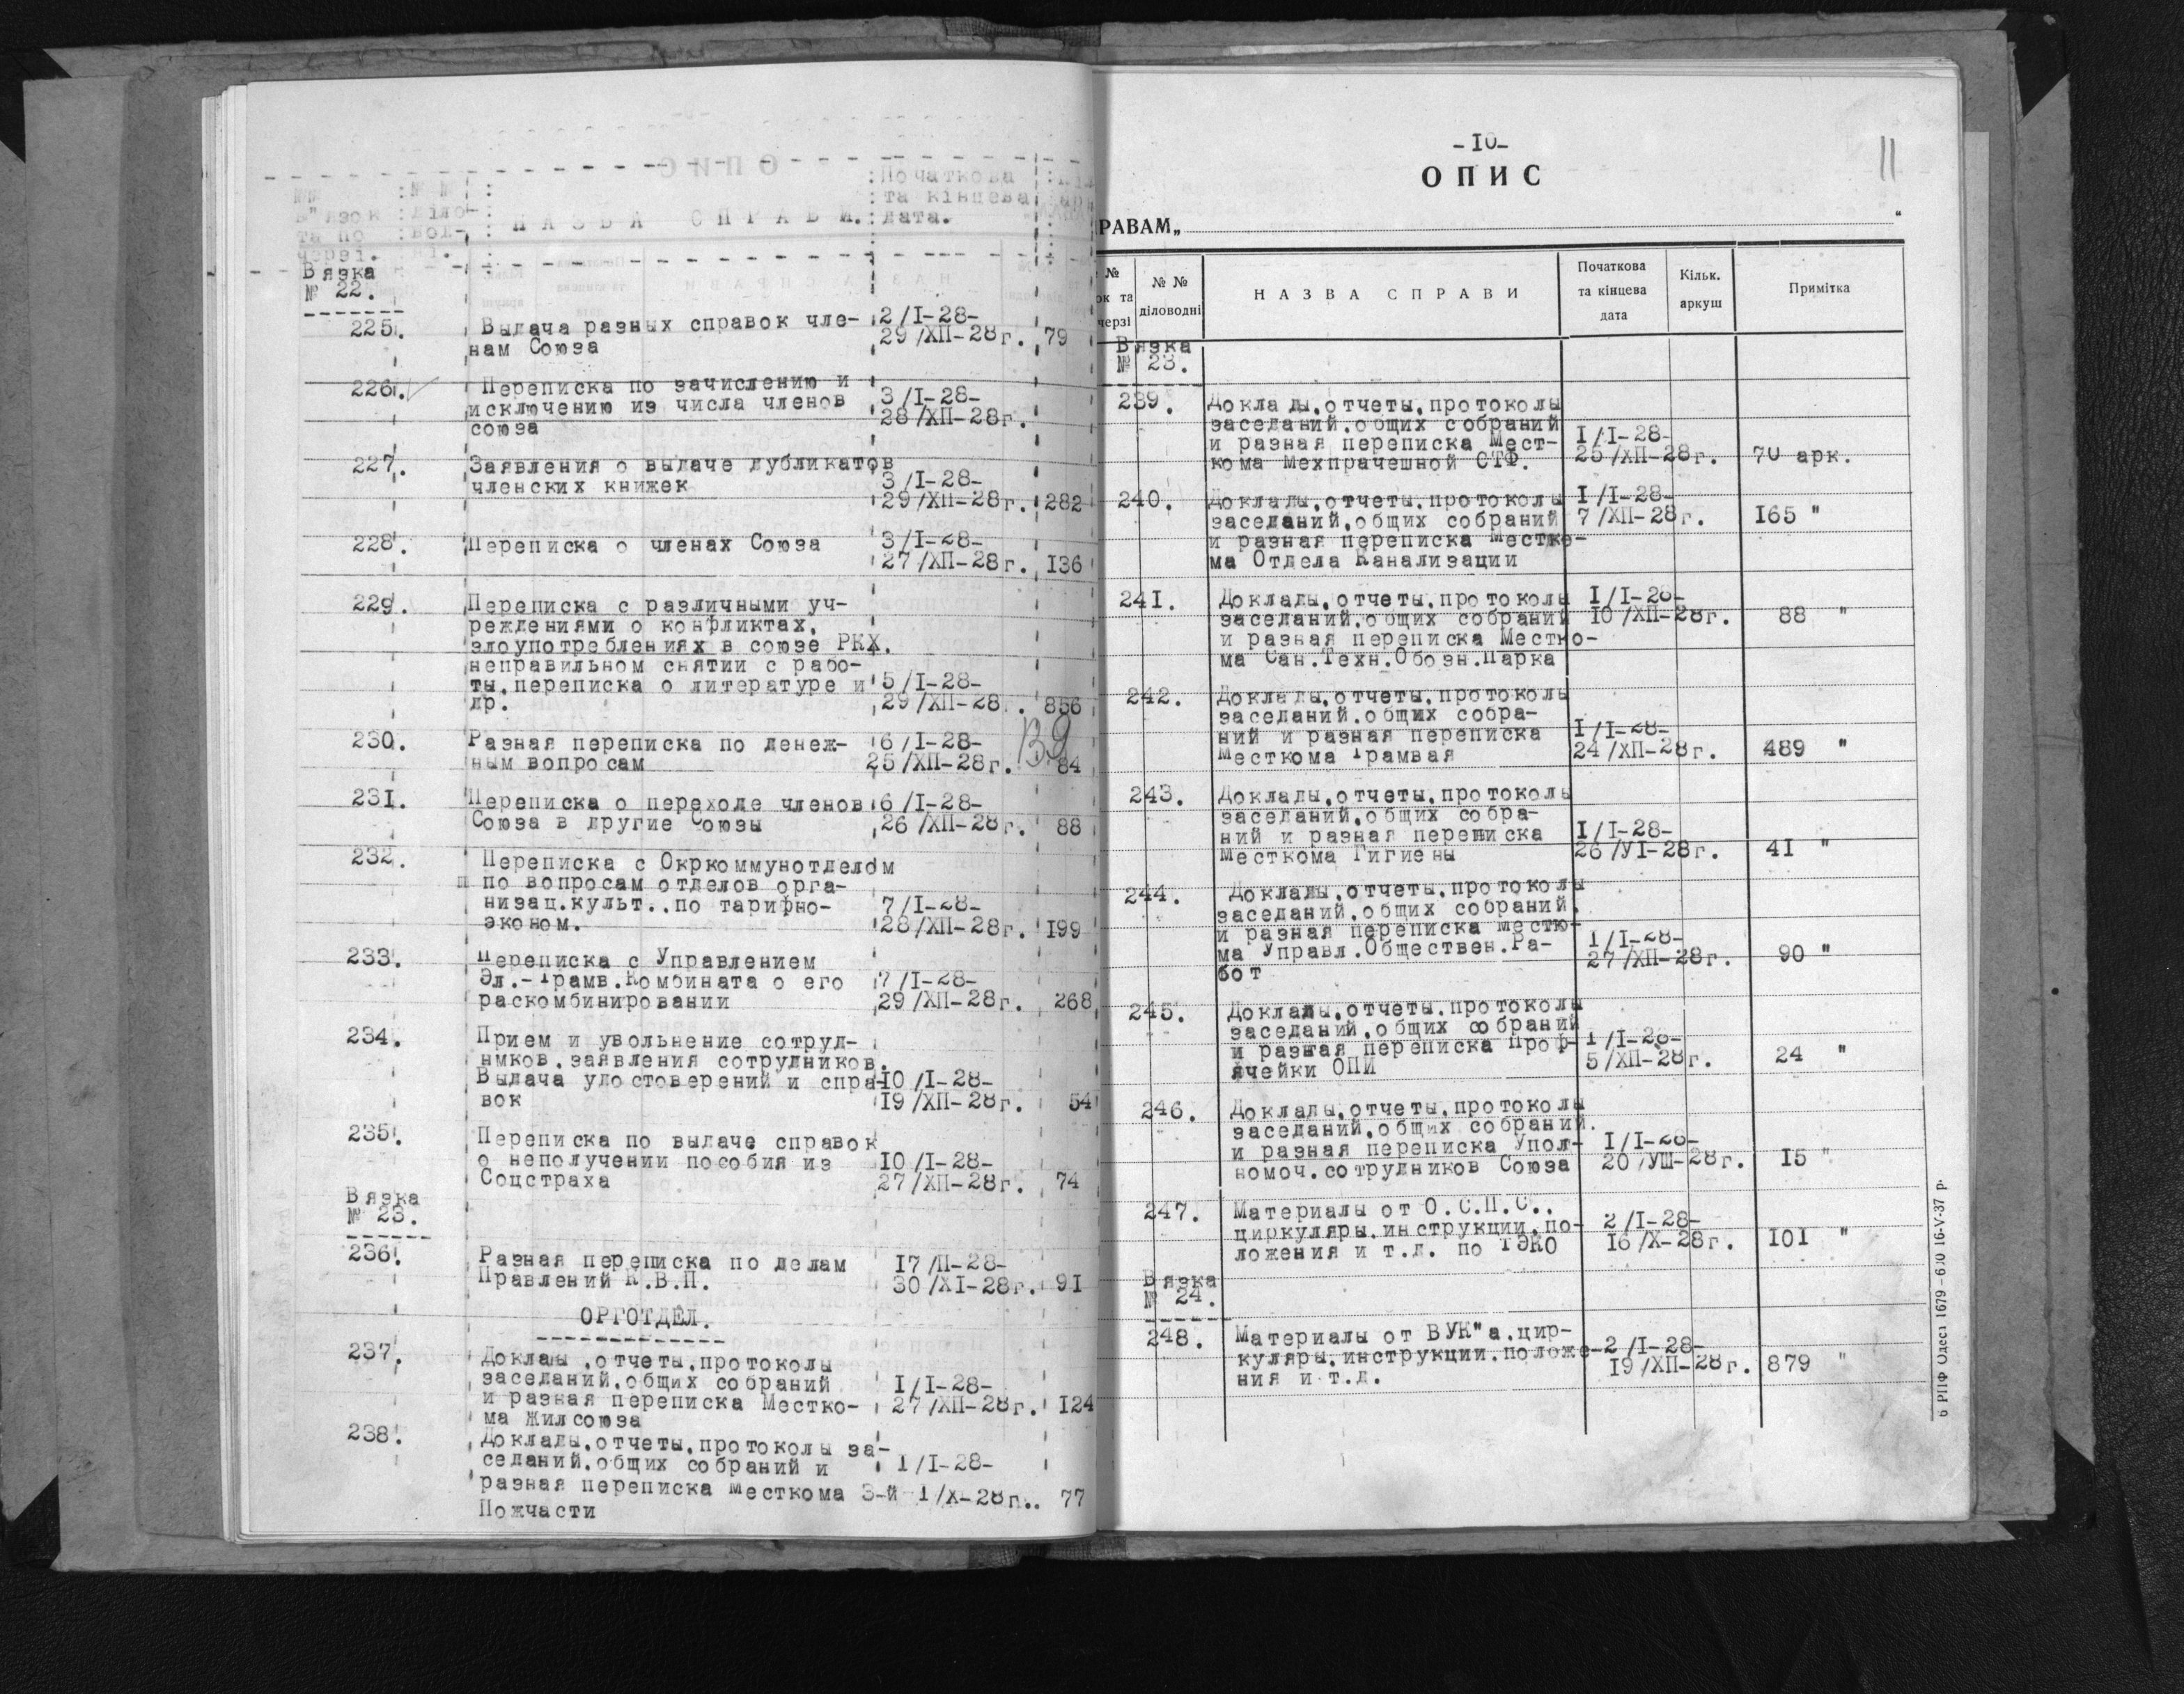 №№ :№ № : :Початкова
в"язок :діло- : Н А З В А С П Р А В И. :та кінцева
та по :вод- : :дата.
черзі.
Вязка
№ 22.
225. Выдача разных справок чле- 2/I-28-
нам Союза 29/ХП-28г. 79
226. Переписка по зачислению и
исключению из числа членов 3/I-28-
союза 28/ХП-28г.
227. Заявления о выдаче дубликатов
членских книжек 3/I-28-
29/ХП-28г. 282
228. Переписка о членах Союза 3/I-28-
27/ХП-28г. 136
229. Переписка с различными уч-
реждениями о конфликтах,
злоупотреблениях в союзе РКХ.
неправильном снятии с рабо-
ты,переписка о литературе и 5/I-28-
др. 29/ХП-28г. 856
139
230. Разная переписка по денеж- 6/I-28-
ным вопросам 25/ХП-28г. 84
231. Переписка о переходе членов 6/I-28-
Союза в другие Союзы 26/ХП-28г. 88
232. Переписка с Окркоммунотделом
п по вопросам отделов орга-
низац.культ..по тарифно- 7/I-28-
эконом. 28/ХП-28г. 199
233. Переписка с Управлением
Эл.-Трамв.Комбината о его 7/I-28-
раскомбинировании 29/ХП-28г. 268
234. Прием и увольнение сотруд-
нмков.заявления сотрудников.
Выдача удостоверений и спра- 10/I-28-
вок 19/ХП-28г. 54
235. Переписка по выдаче справок
о неполучении пособия из 10/I-28-
Соцстраха 27/ХП-28г. 74
Вязка
№ 23.
236. Разная переписка по делам 17/П-28-
Правлений К.В.П. 30/XI-28г. 91
ОРГОТДЕЛ.
237. Доклады ,отчеты,протоколы
заседаний,общих собраний 1/I-28-
и разная переписка Местко- 27/ХП-28г. 124
ма Жилсоюза
238. Доклады,отчеты,протоколы за-
седаний.общих собраний и 1/I-28-
разная переписка месткома 3-й 1/X-28г.. 77
Пожчасти
-10-
11
ОПИС
РАВАМ„ “
№ № № Н А З В А С П Р А В И Початкова Кільк. Примітка
ок та діловодні та кінцева аркуш
черзі дата
Вязка
№ 23.
239. Доклады,отчеты,протоколы
заседаний,общих собраний
и разная переписка Мест- I/I-28-
кома Мехпрачешной СТФ. 25/ХП-28г. 70 арк.
240. Доклады,отчеты,протоколы I/I-28-
заседаний,общих собраний 7/ХП-28г. 165 "
и разная переписка Местко-
ма Отдела Канализации
241. Доклады,отчеты,протоколы I/I-28-
заседаний,общих собраний 10/ХП-28г. 88 "
и разная переписка Местко-
ма Сан.Техн.Обозн.Парка
242. Доклады,отчеты,протоколы
заседаний.общих собра-
ний и разная переписка I/I-28-
Месткома Трамвая 24/ХП-28г. 489 "
243. Доклады,отчеты,протоколы
заседаний,общих собра-
ний и разная переписка I/I-28-
месткома Гигиены 26/УI-28г. 41 "
244. Доклады,отчеты,протоколы
заседаний,общих собраний,
и разная переписка местко-
ма Управл.Обществен.Ра- 1/I-28-
бот 27/ХП-28г. 90 "
245. Доклады,отчеты,протоколы
заседаний,общих собраний
и разная переписка Проф- 1/I-28-
ячейки ОПИ 5/ХП-28г. 24 "
246. Доклады,отчеты,протоколы
заседаний,общих собраний.
и разная переписка Упол- I/I-28-
номоч.сотрудников Союза 20/УШ-28г. 15 "
247. Материалы от О.С.П.С..
циркуляры.инструкции.по- 2/I-28-
ложения и т.д. по ТЭКО 16/X-28г. 101 "
Вязка
№ 24.
248. Материалы от ВУК"а.цир-
куляры.инструкции.положе- 2/I-28-
ния и т.д. 19/ХП-28г. 879 "
6 РПФ Одеса 1679–600 16-V-37 р.